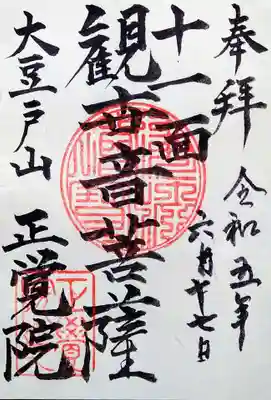 奉拝 令和五年
六月十七日
十一面
観世音菩薩
大豆戸山 正覚院